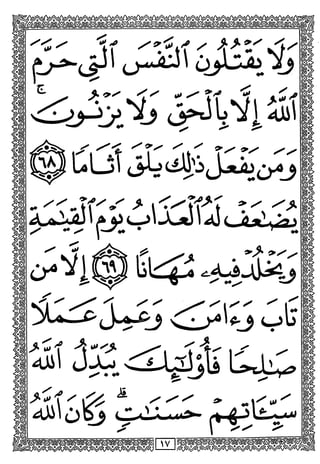 وَلَا يَقۡتُلُونَ ٱلنَّفۡسَ ٱلَّتِي حَرَّمَ
ٱللَّهُ إِلَّا بِٱلۡحَقِّ وَلَا يَزۡنُونَۚ
وَمَن يَفۡعَلۡ ذَٰلِكَ يَلۡقَ أَثَامٗا ٦٨
يُضَٰعَفۡ لَهُ ٱلۡعَذَابُ يَوۡمَ ٱلۡقِيَٰمَةِ
وَيَخۡلُدۡ فِيهِۦ مُهَانًا ٦٩ إِلَّا مَن
تَابَ وَءَامَنَ وَعَمِلَ عَمَلٗا
صَٰلِحٗا فَأُوْلَٰٓئِكَ يُبَدِّلُ ٱللَّهُ
سَيِّـَٔاتِهِمۡ حَسَنَٰتٖۗ وَكَانَ ٱللَّهُ
١٧